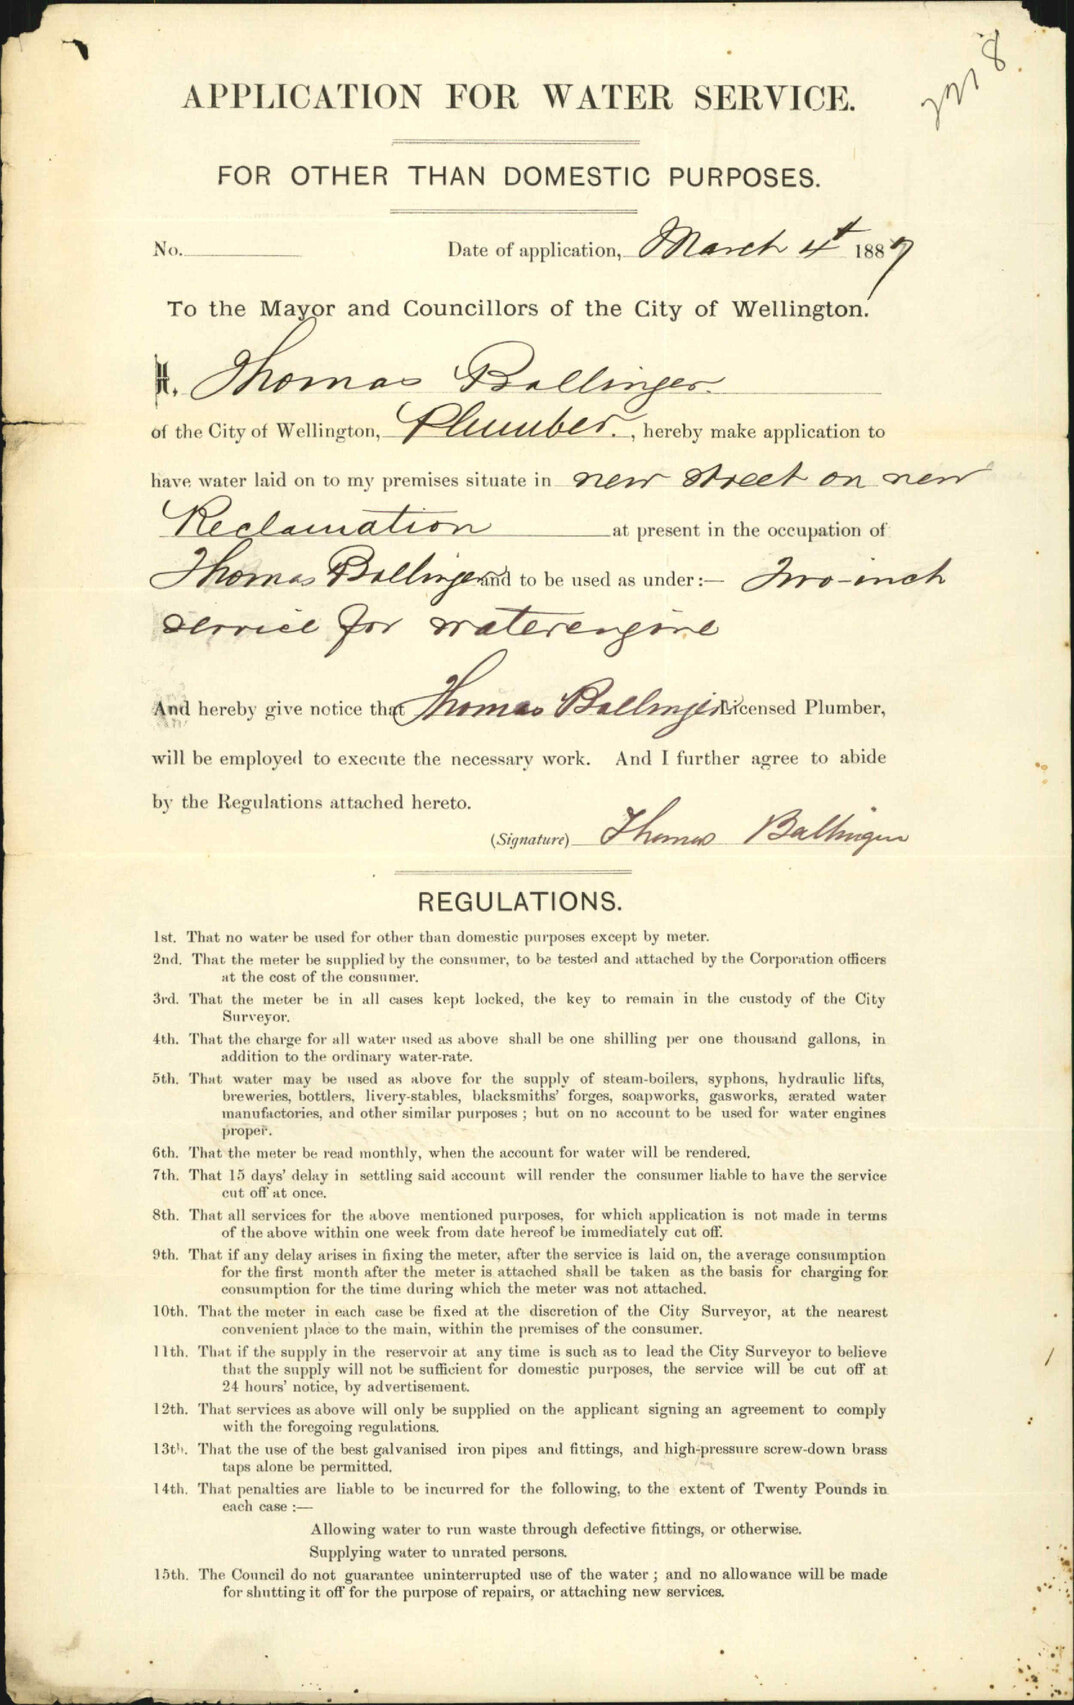 APPLICATION FOR WATER SERVICE.
FOR OTHER THAN DOMESTIC PURPOSES.
No. Date of application, March 4th 1887
To the Mayor and Councillors of the City of Wellington.
I, Thomas Ballinger
of the City of Wellington, Plumber. , hereby make application to
have water laid on to my premises situate in new street on new
Reclamation at present in the occupation of
Thomas Ballinger and to be used as under:— Two-inch
service for waterengine
And hereby give notice that Thomas Ballinger Licensed Plumber,
will be employed to execute the necessary work. And I further agree to abide
by the Regulations attached hereto.
(Signature) Thomas Ballinger
REGULATIONS.
1st. That no water be used for other than domestic purposes except by meter.
2nd. That the meter be supplied by the consumer, to be tested and attached by the Corporation officers
at the cost of the consumer.
3rd. That the meter be in all cases kept locked, the key to remain in the custody of the City
Surveyor.
4th. That the charge for all water used as above shall be one shilling per one thousand gallons, in
addition to the ordinary water-rate.
5th. That water may be used as above for the supply of steam-boilers, syphons, hydraulic lifts,
breweries, bottlers, livery-stables, blacksmiths' forges, soapworks, gasworks, ærated water
manufactories, and other similar purposes ; but on no account to be used for water engines
proper.
6th. That the meter be read monthly, when the account for water will be rendered.
7th. That 15 days' delay in settling said account will render the consumer liable to have the service
cut off at once.
8th. That all services for the above mentioned purposes, for which application is not made in terms
of the above within one week from date hereof be immediately cut off.
9th. That if any delay arises in fixing the meter, after the service is laid on, the average consumption
for the first month after the meter is attached shall be taken as the basis for charging for
consumption for the time during which the meter was not attached.
10th. That the meter in each case be fixed at the discretion of the City Surveyor, at the nearest
convenient place to the main, within the premises of the consumer.
11th. That if the supply in the reservoir at any time is such as to lead the City Surveyor to believe
that the supply will not be sufficient for domestic purposes, the service will be cut off at
24 hours' notice, by advertisement.
12th. That services as above will only be supplied on the applicant signing an agreement to comply
with the foregoing regulations.
13th. That the use of the best galvanised iron pipes and fittings, and high-pressure screw-down brass
taps alone be permitted.
14th. That penalties are liable to be incurred for the following, to the extent of Twenty Pounds in
each case :—
Allowing water to run waste through defective fittings, or otherwise.
Supplying water to unrated persons.
15th. The Council do not guarantee uninterrupted use of the water ; and no allowance will be made
for shutting it off for the purpose of repairs, or attaching new services.